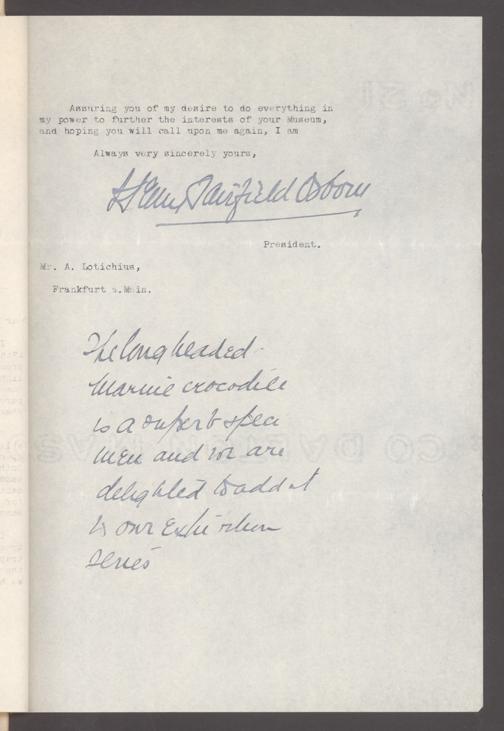 Assuring you of my desire to do everything in
my power to further the interests of your Museum,
and hoping you will call upon me again, I am
Always very sincerely yours,
Henry Fairfield Osborn
President.
Mr. A. Lotichius,
Frankfurt a.Main.
The long headed
marine crocodile
is a superb speci
men and we are
delighted to add it
to our exhibition
series